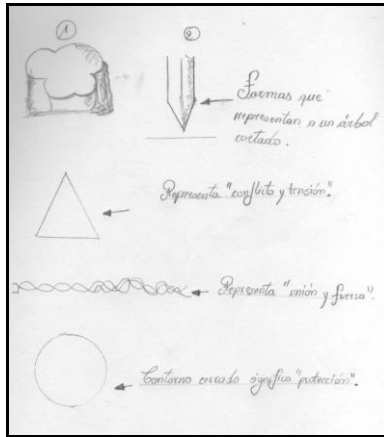 1
2
Formas que
representan a un árbol
cortado.
Representa "conflicto y tensión".
Representa "unión y fuerza".
Contorno cerrado significa "protección".